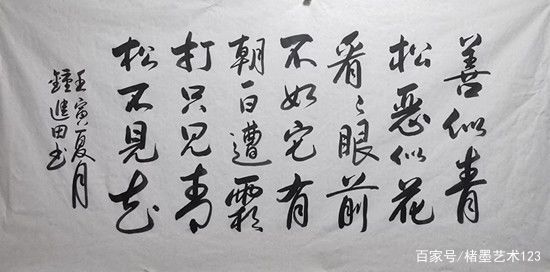 善似青
松恶似花
看〻眼前
不如它有
朝一日遭霜
打只见青
松不见花
壬寅夏月
钟进田书
百家号/楮墨艺术123